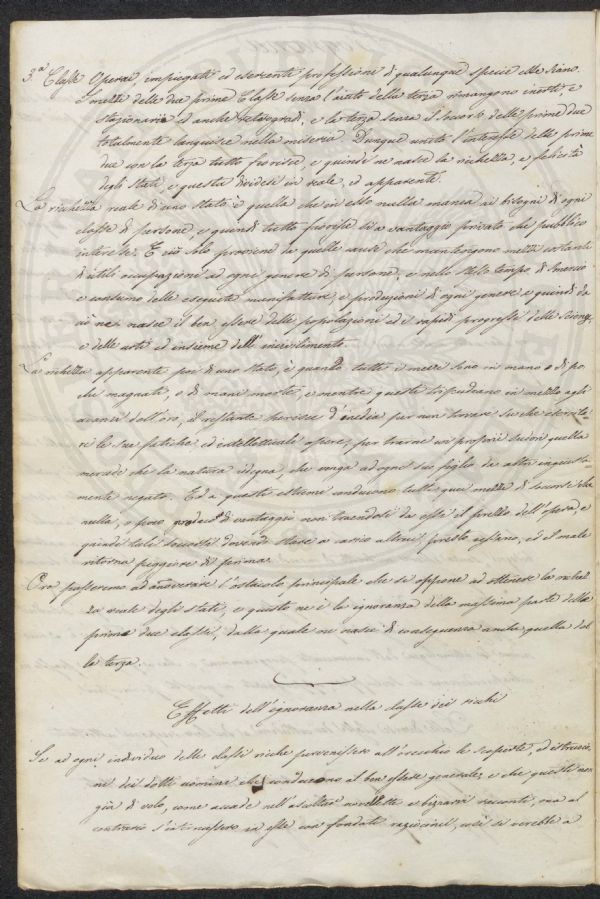 3.a Classe Operai impiegati ed esercenti professione di qualunque specie essi siano.
I mezzi delle due prime Classi senza l'aiuto della terza rimangono inerti, e
stazionarii ed anche retrogradi, e la terza senza il soccorso delle prime due
totalmente languisce nella miseria. Dunque unito l'interesse delle prime
due con la terza tutto fiorisce, e quindi ne nasce la richezza, e felicità
degli Stati, e questa dividesi in reale, ed apparente.
La richezza reale di uno Stato è quella che in esso nulla manca ai bisogni di ogni
classe di persone, e quindi tutto fiorisce sì a vantaggio privato che pubblico
interesse. E ciò solo proviene da quelle cause che mantengono mezzi costanti
di utili occupazioni ad ogni genere di persone, e nello stesso tempo di smercio
e consumo delle eseguite manifatture, e produzioni di ogni genere e quindi da
ciò ne nasce il ben essere delle popolazioni ed i rapidi progressi delle scienze,
e delle arti ed insieme dell'incivilimento.
La richezza apparente poi di uno Stato, è quando tutti i mezzi sono in mano o di po-
chi magnati, o di mani morte, e mentre questi tripudiano in mezzo agli
avanzi dell'oro, il restante perisce d'inedia per non trovare su che esercita-
re le sue fatiche ed intellettuali opere, per trarne coi proprii sudori quella
mercede che la natura esigge, che venga ad ogni suo figlio da altri ingiusta-
mente negato. Ed a questi estremi conducono tutti quei mezzi di soccorso che
nulla, o poco producono di vantaggio non traendosi da essi il prezzo dell'opera, e
quindi tali soccorsi dovendo stare a carico altrui presto cessano, ed il male
ritorna peggiore di prima.
Ora passeremo ad annoverare l'ostacolo principale che si oppone ad ottenere la richez-
za reale degli stati, e questo ne è la ignoranza della massima parte delle
prime due classi, dalla quale ne nasce di conseguenza anche quella del-
la terza.
Effetti dell'ignoranza nella classe dei richi
Se ad ogni individuo delle classi riche pervenissero all'orecchio le scoperte, ed istruzio-
ni dei dotti uomini che conducono al ben essere generale, e che queste non
già di volo, come accade nell'ascoltar novellette e bizzarri racconti, ma al
contrario s'internassero in esse con fondati raziocinii, così si verrebbe a